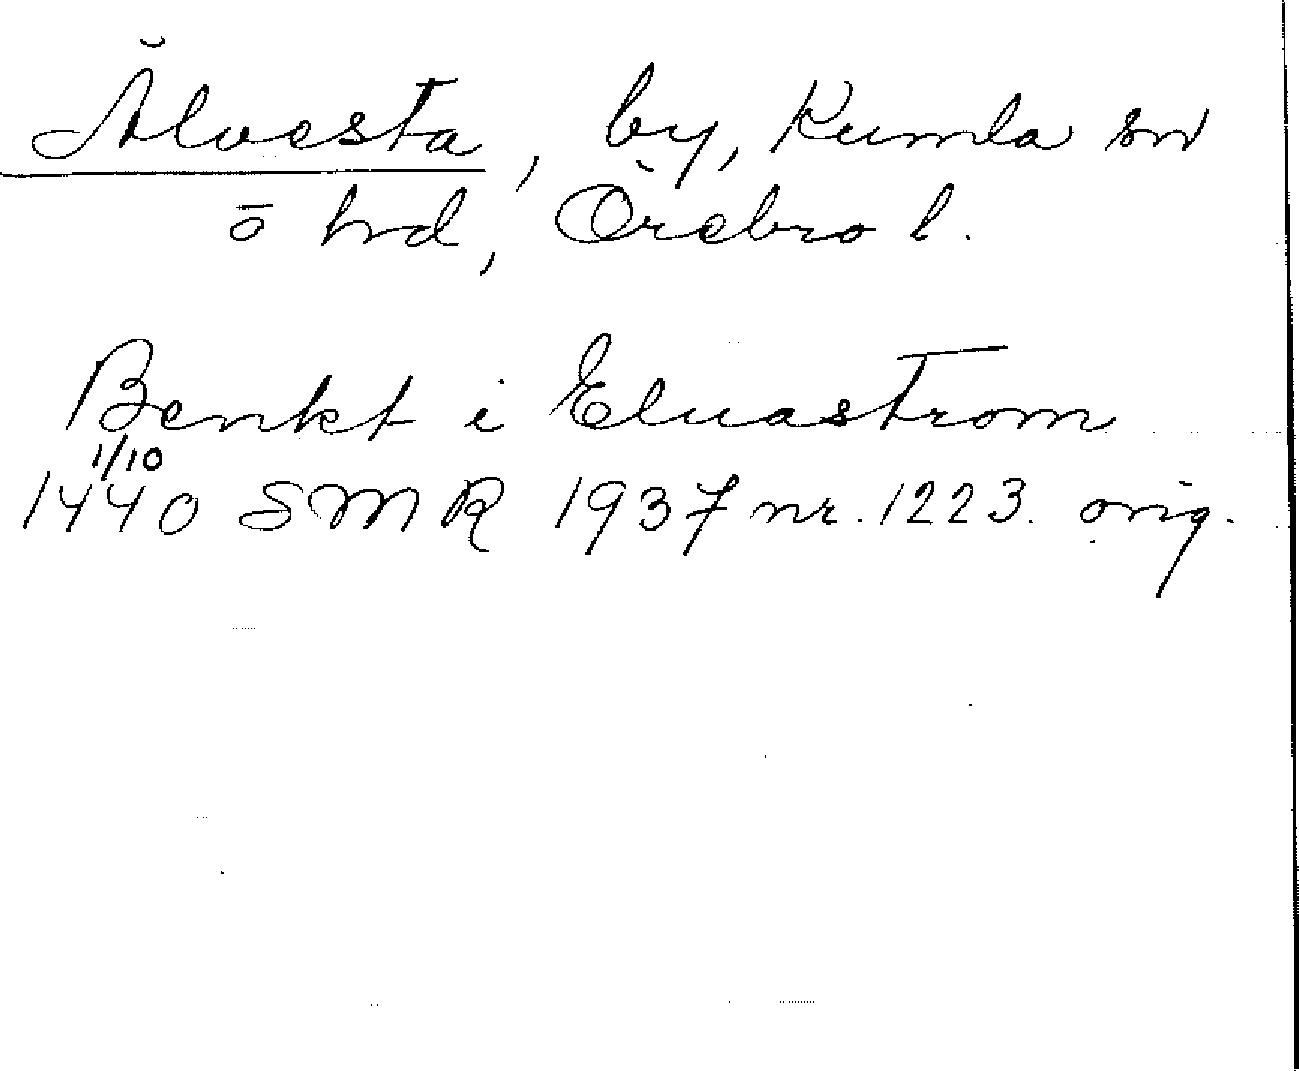 Älvesta, by, Kumla sn
o hd, Örebro l.
Benkt i Eluastrom
1/10
1440 SMR 1937 nr. 1223. orig.